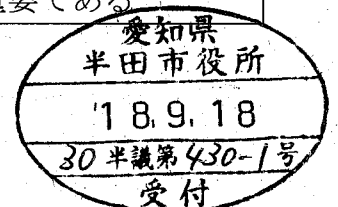 要である
愛知県
半田市役所
'18.9.18
30半議第430-1号
受付